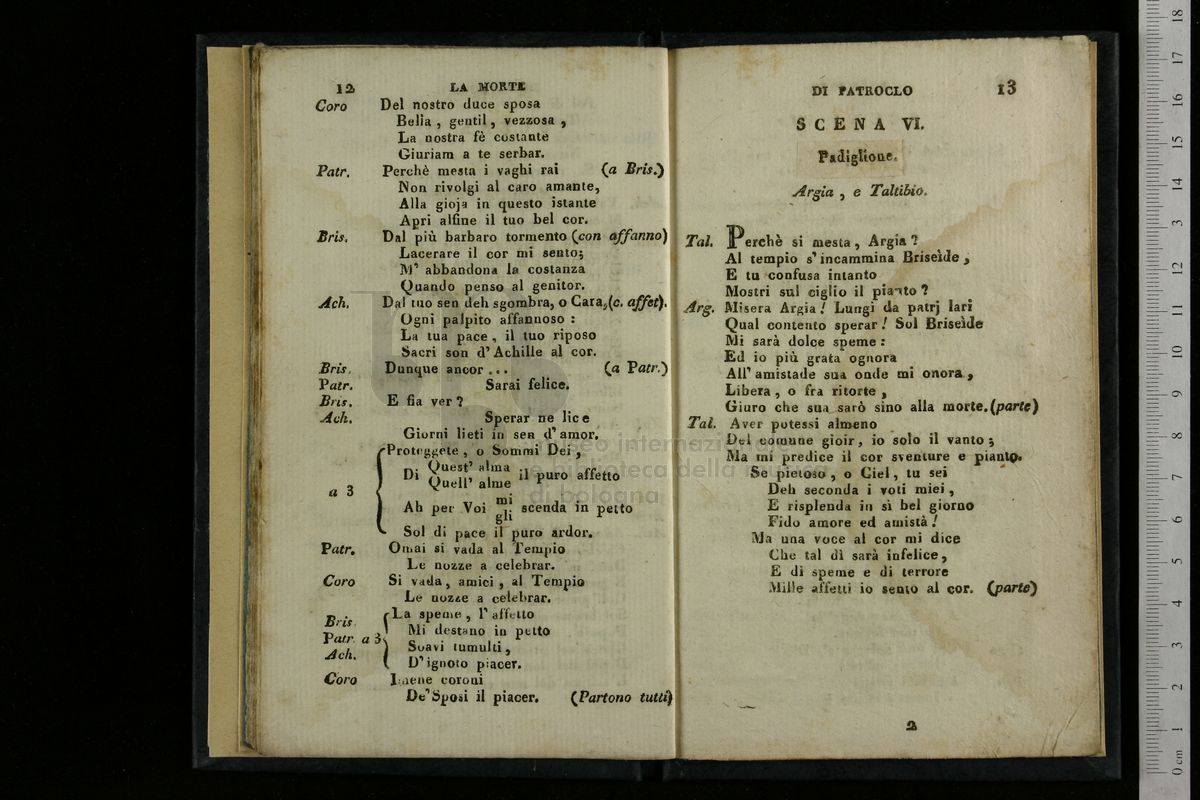 12 LA MORTE
Coro Del nostro duce sposa
Bella, gentil, vezzosa,
La nostra fè costante
Giuriam a te serbar.
Patr. Perchè mesta i vaghi rai (a Bris.)
Non rivolgi al caro amante,
Alla gioja in questo istante
Apri alfine il tuo bel cor.
Bris. Dal più barbaro tormento (con affanno)
Lacerare il cor mi sento;
M' abbandona la costanza
Quando penso al genitor.
Ach. Dal tuo sen deh sgombra, o Cara, (c. affet).
Ogni palpito affannoso:
La tua pace, il tuo riposo
Sacri son d' Achille al cor.
Bris. Dunque ancor... (a Patr.)
Patr. Sarai felice.
Bris. E fia ver?
Ach. Sperar ne lice
Giorni lieti in sen d' amor.
a 3 Proteggete, o Sommi Dei,
Di Quest' alma il puro affetto
Quell' alme
Ah per Voi mi scenda in petto
gli
Sol di pace il puro ardor.
Patr. Omai si vada al Tempio
Le nozze a celebrar.
Coro Si vada, amici, al Tempio
Le nozze a celebrar.
Bris. La speme, l' affetto
Patr. a 3 Mi destano in petto
Ach. Soavi tumulti,
D' ignoto piacer.
Coro Imene coroni
De' Sposi il piacer. (Partono tutti)
DI PATROCLO 13
SCENA VI.
Padiglione.
Argia, e Taltibio.
Tal. Perchè si mesta, Argia?
Al tempio s' incammina Briseide,
E tu confusa intanto
Mostri sul ciglio il pianto?
Arg. Misera Argia! Lungi da patrj lari
Qual contento sperar! Sol Briseide
Mi sarà dolce speme:
Ed io più grata ognora
All' amistade sua onde mi onora,
Libera, o fra ritorte,
Giuro che sua sarò sino alla morte. (parte)
Tal. Aver potessi almeno
Del comune gioir, io solo il vanto;
Ma mi predice il cor sventure e pianto.
Se pietoso, o Ciel, tu sei
Deh seconda i voti miei,
E risplenda in sì bel giorno
Fido amore ed amistà!
Ma una voce al cor mi dice
Che tal dì sarà infelice,
E di speme e di terrore
Mille affetti io sento al cor. (parte)
2
museo internazionale
e biblioteca della musica
di bologna
0 cm 1 2 3 4 5 6 7 8 9 10 11 12 13 14 15 16 17 18